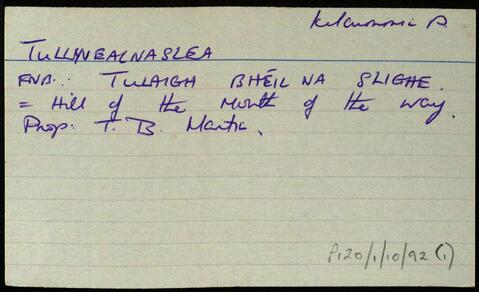 Kilcummin P.
TULLYVEALNASLEA
FNB.: TULAIGH BHÉIL NA SLIGHE.
= Hill of the Mouth of the way.
Prop: T. B. Martin.
P120/1/10/92 (1)